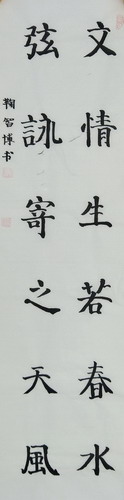 文情生若春水
弦詠寄之天風
鞠智博书